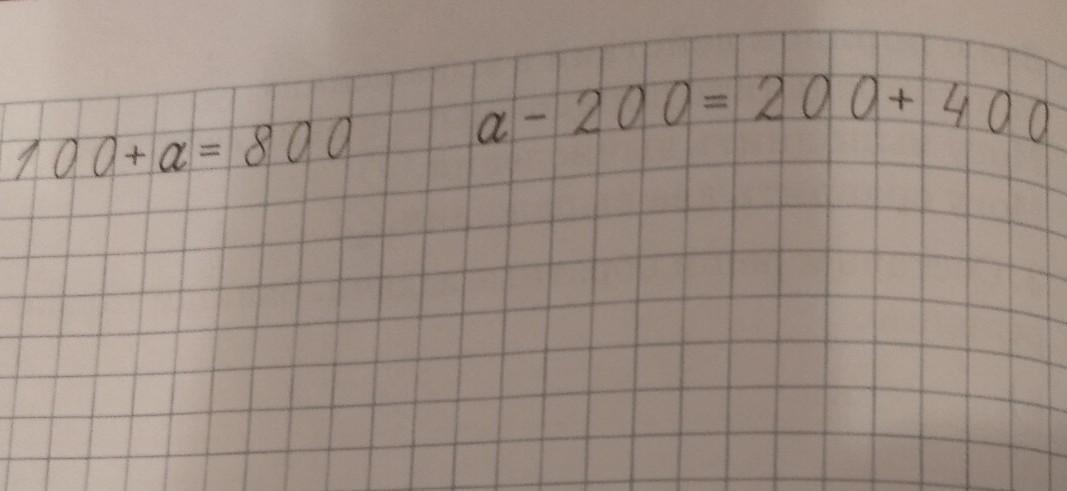 100+a=800 a-200=200+400